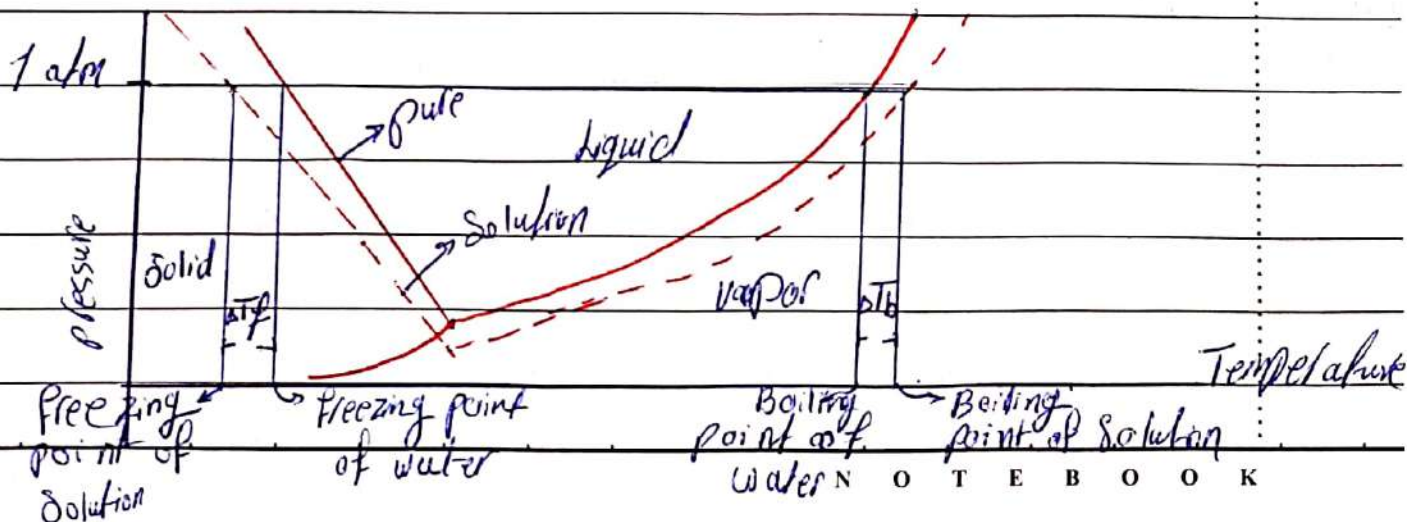 1 atm
pure
Liquid
Solution
Pressure
Solid
ΔTf
vapor
ΔTb
Temperature
freezing point of Solution
freezing point of water
Boiling point of water
Boiling point of Solution
NOTEBOOK